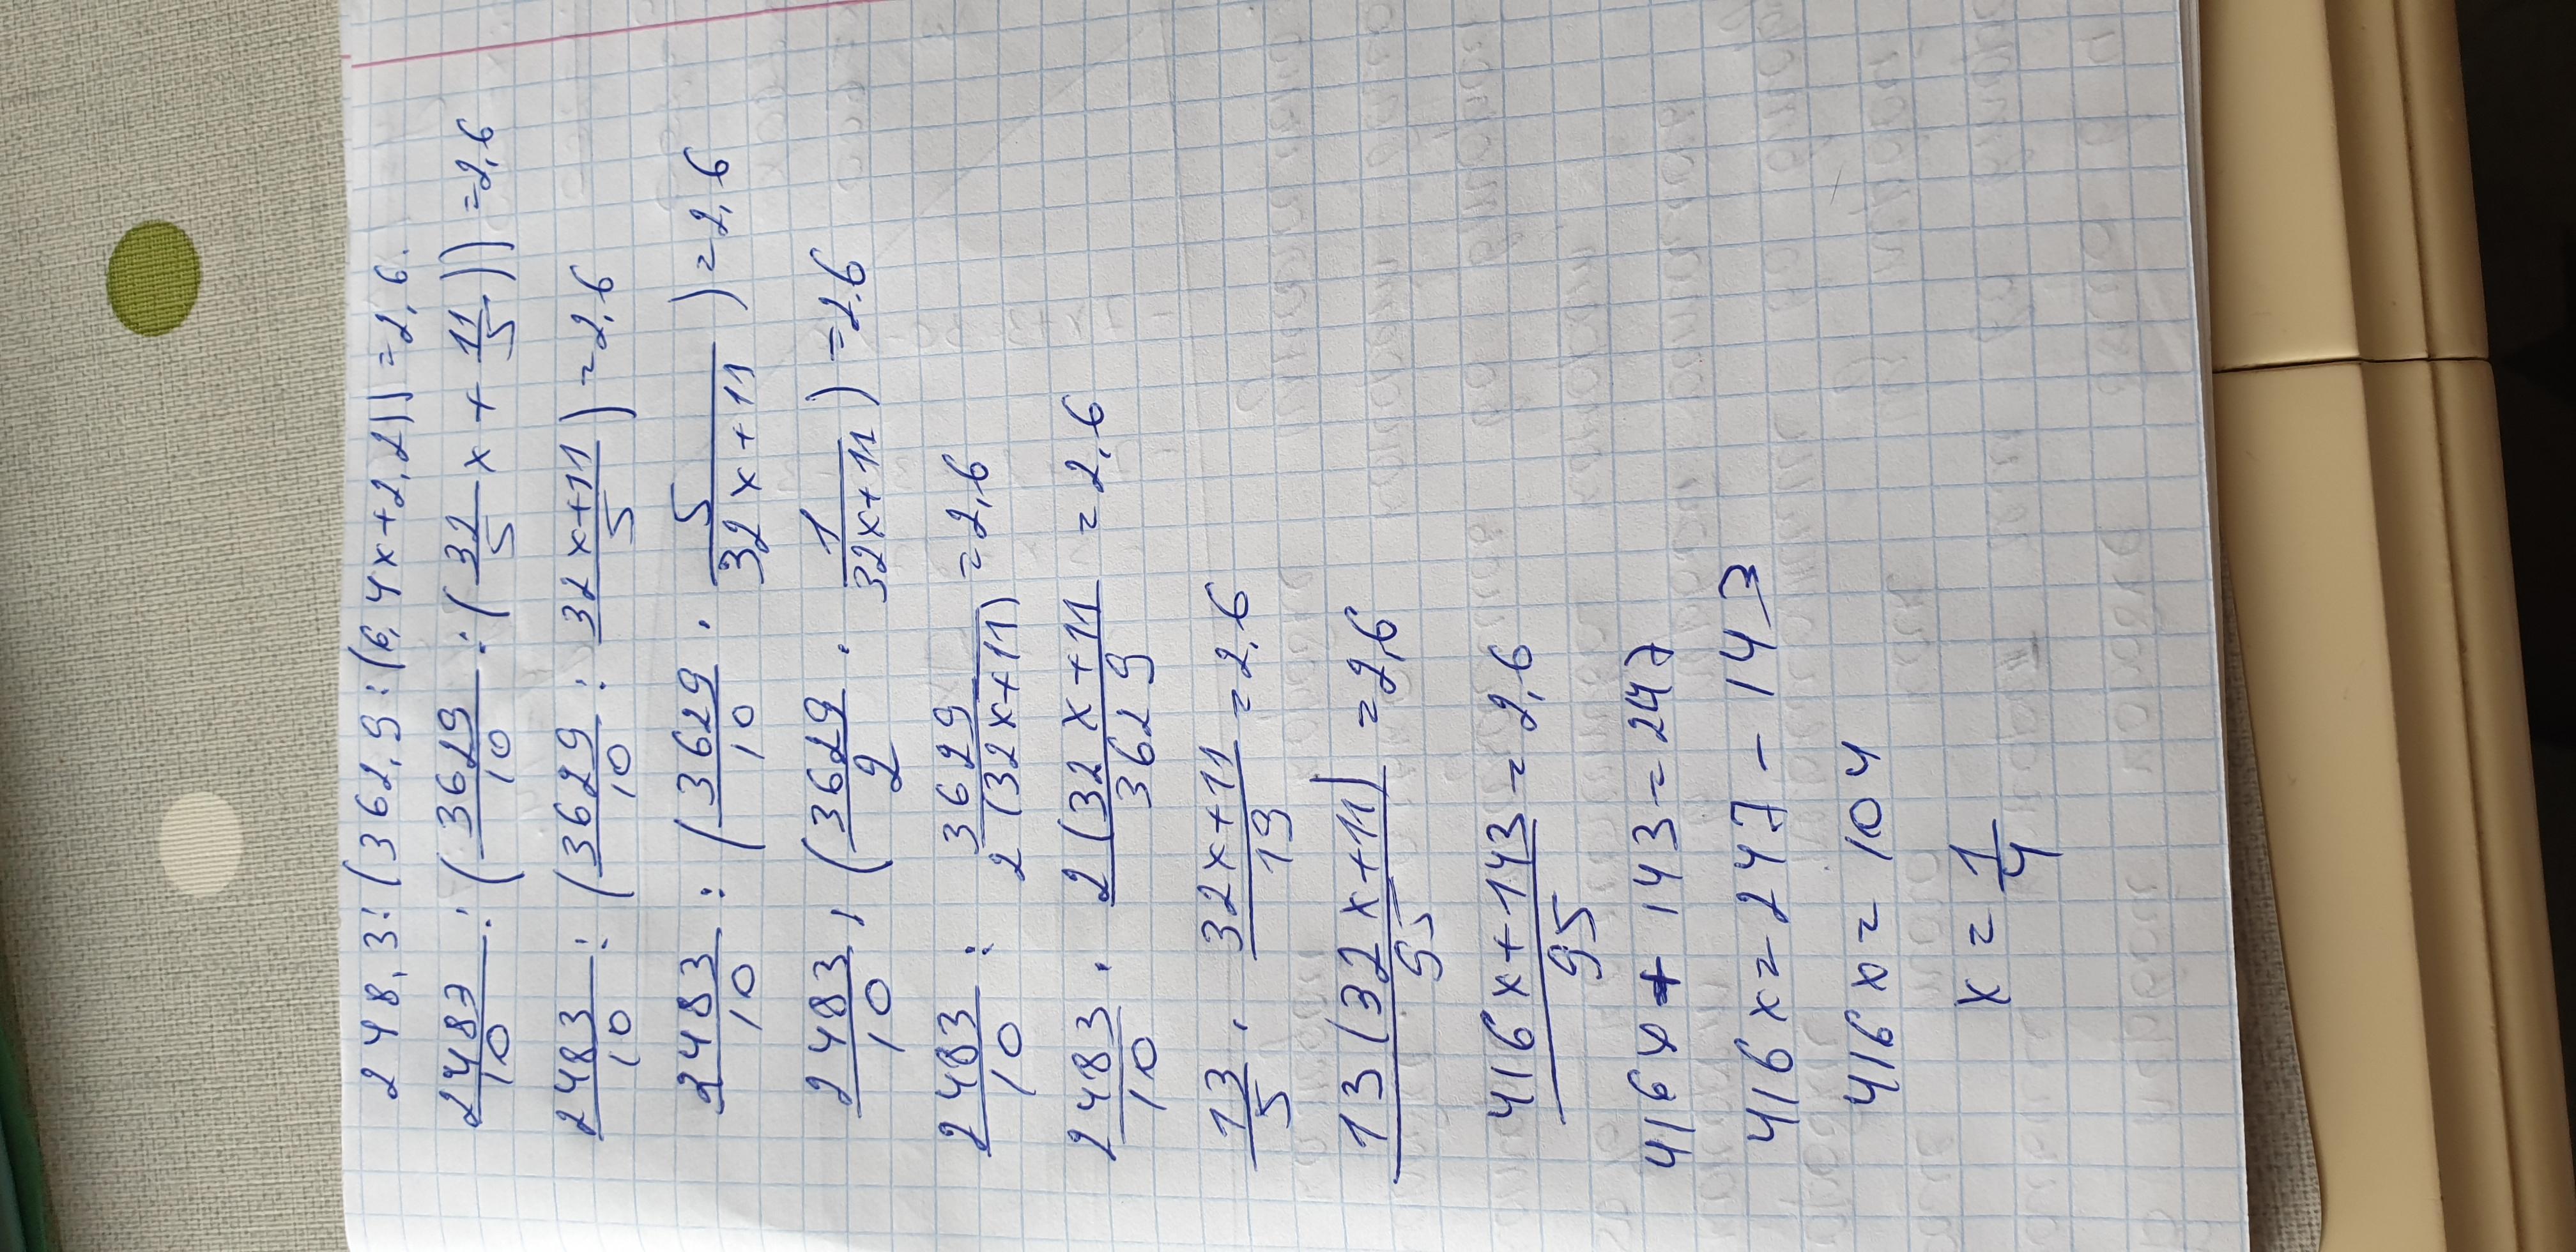 248,3:(362,9:(6,4x+2,2))=2,6.
2483/10 : (3629/10 : (32/5 x + 11/5)) = 2,6
2483/10 : (3629/10 : 32x+11/5) = 2,6
2483/10 : (3629/10 · 5/32x+11) = 2,6
2483/10 , (3629/2 · 1/32x+11) = 2,6
2483/10 : 3629/2(32x+11) = 2,6
2483/10 · 2(32x+11/3629 = 2,6
13/5 · 32x+11/19 = 2,6
13(32x+11)/95 = 2,6
416x+143/95 = 2,6
416x + 143 = 247
416x = 247 - 143
416x = 104
x = 1/4